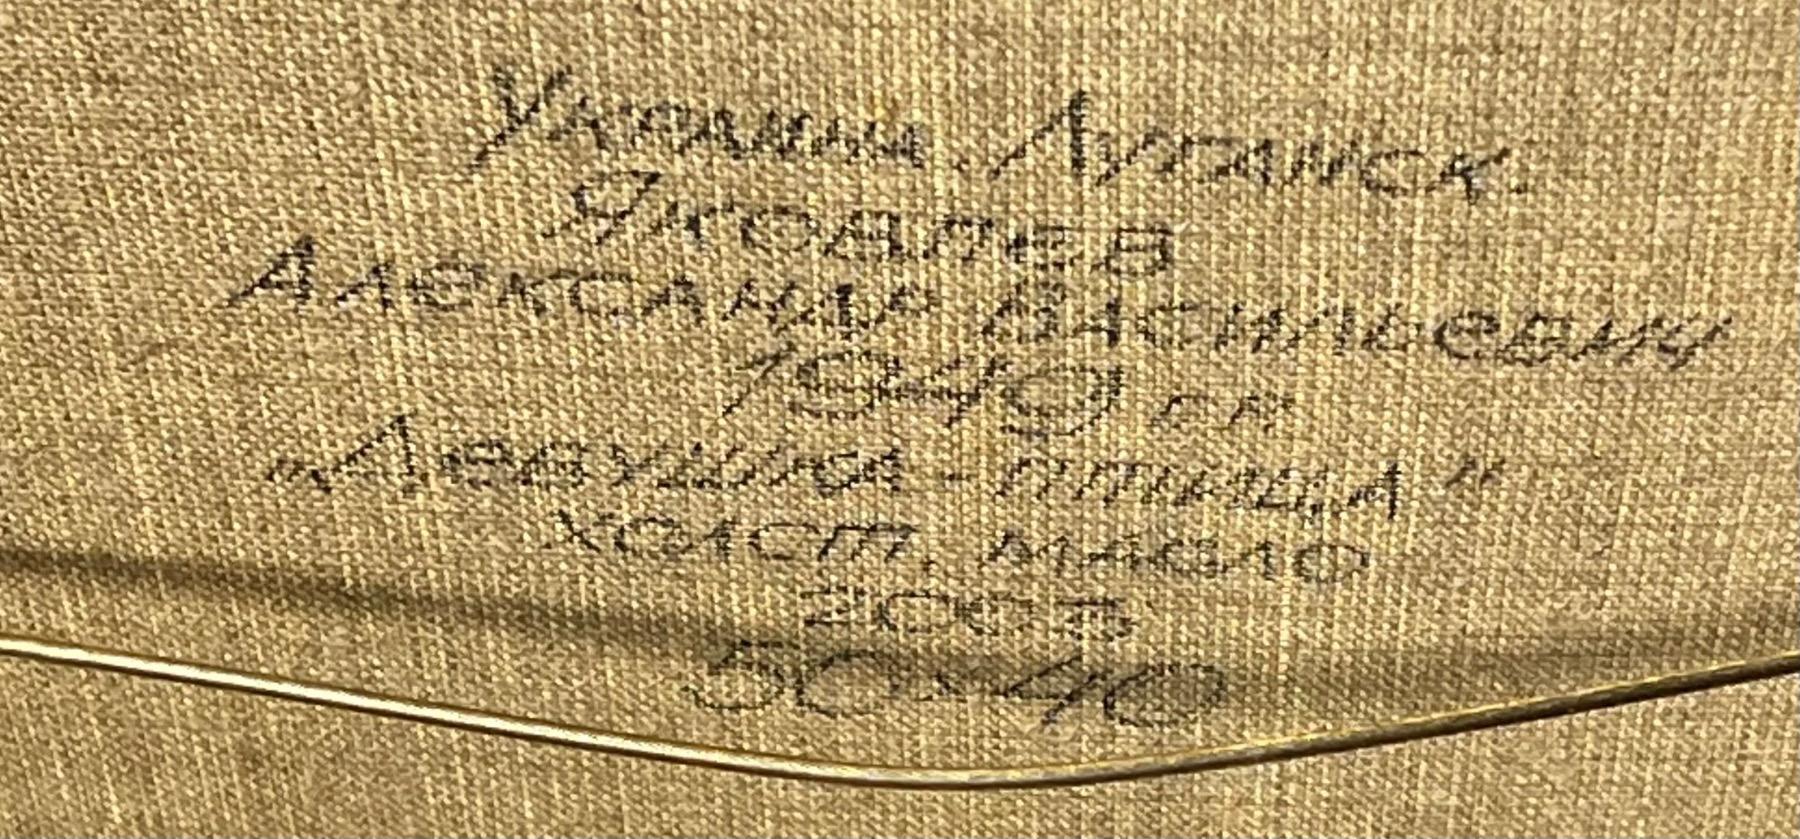 Украина. Луганск.
Яковлев
Александр Васильевич
1940 г.р.
„Девушка - птица"
холст, масло
2003
50×40